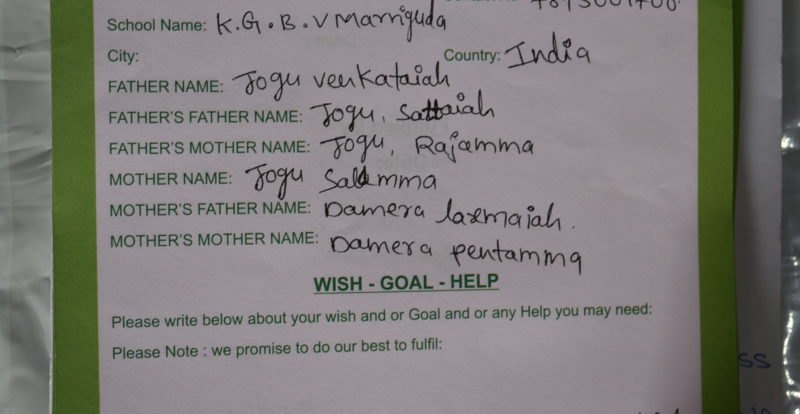 School Name: K.G.B.V Marriguda
City: Country: India
FATHER NAME: Jogu venkataiah
FATHER'S FATHER NAME: Jogu, Sattaiah
FATHER'S MOTHER NAME: Jogu, Rajamma
MOTHER NAME: Jogu
MOTHER'S FATHER NAME: Damera laxmaiah.
MOTHER'S MOTHER NAME: Damera pentamma
WISH - GOAL - HELP
Please write below about your wish and or Goal and or any Help you may need:
Please Note : we promise to do our best to fulfil: